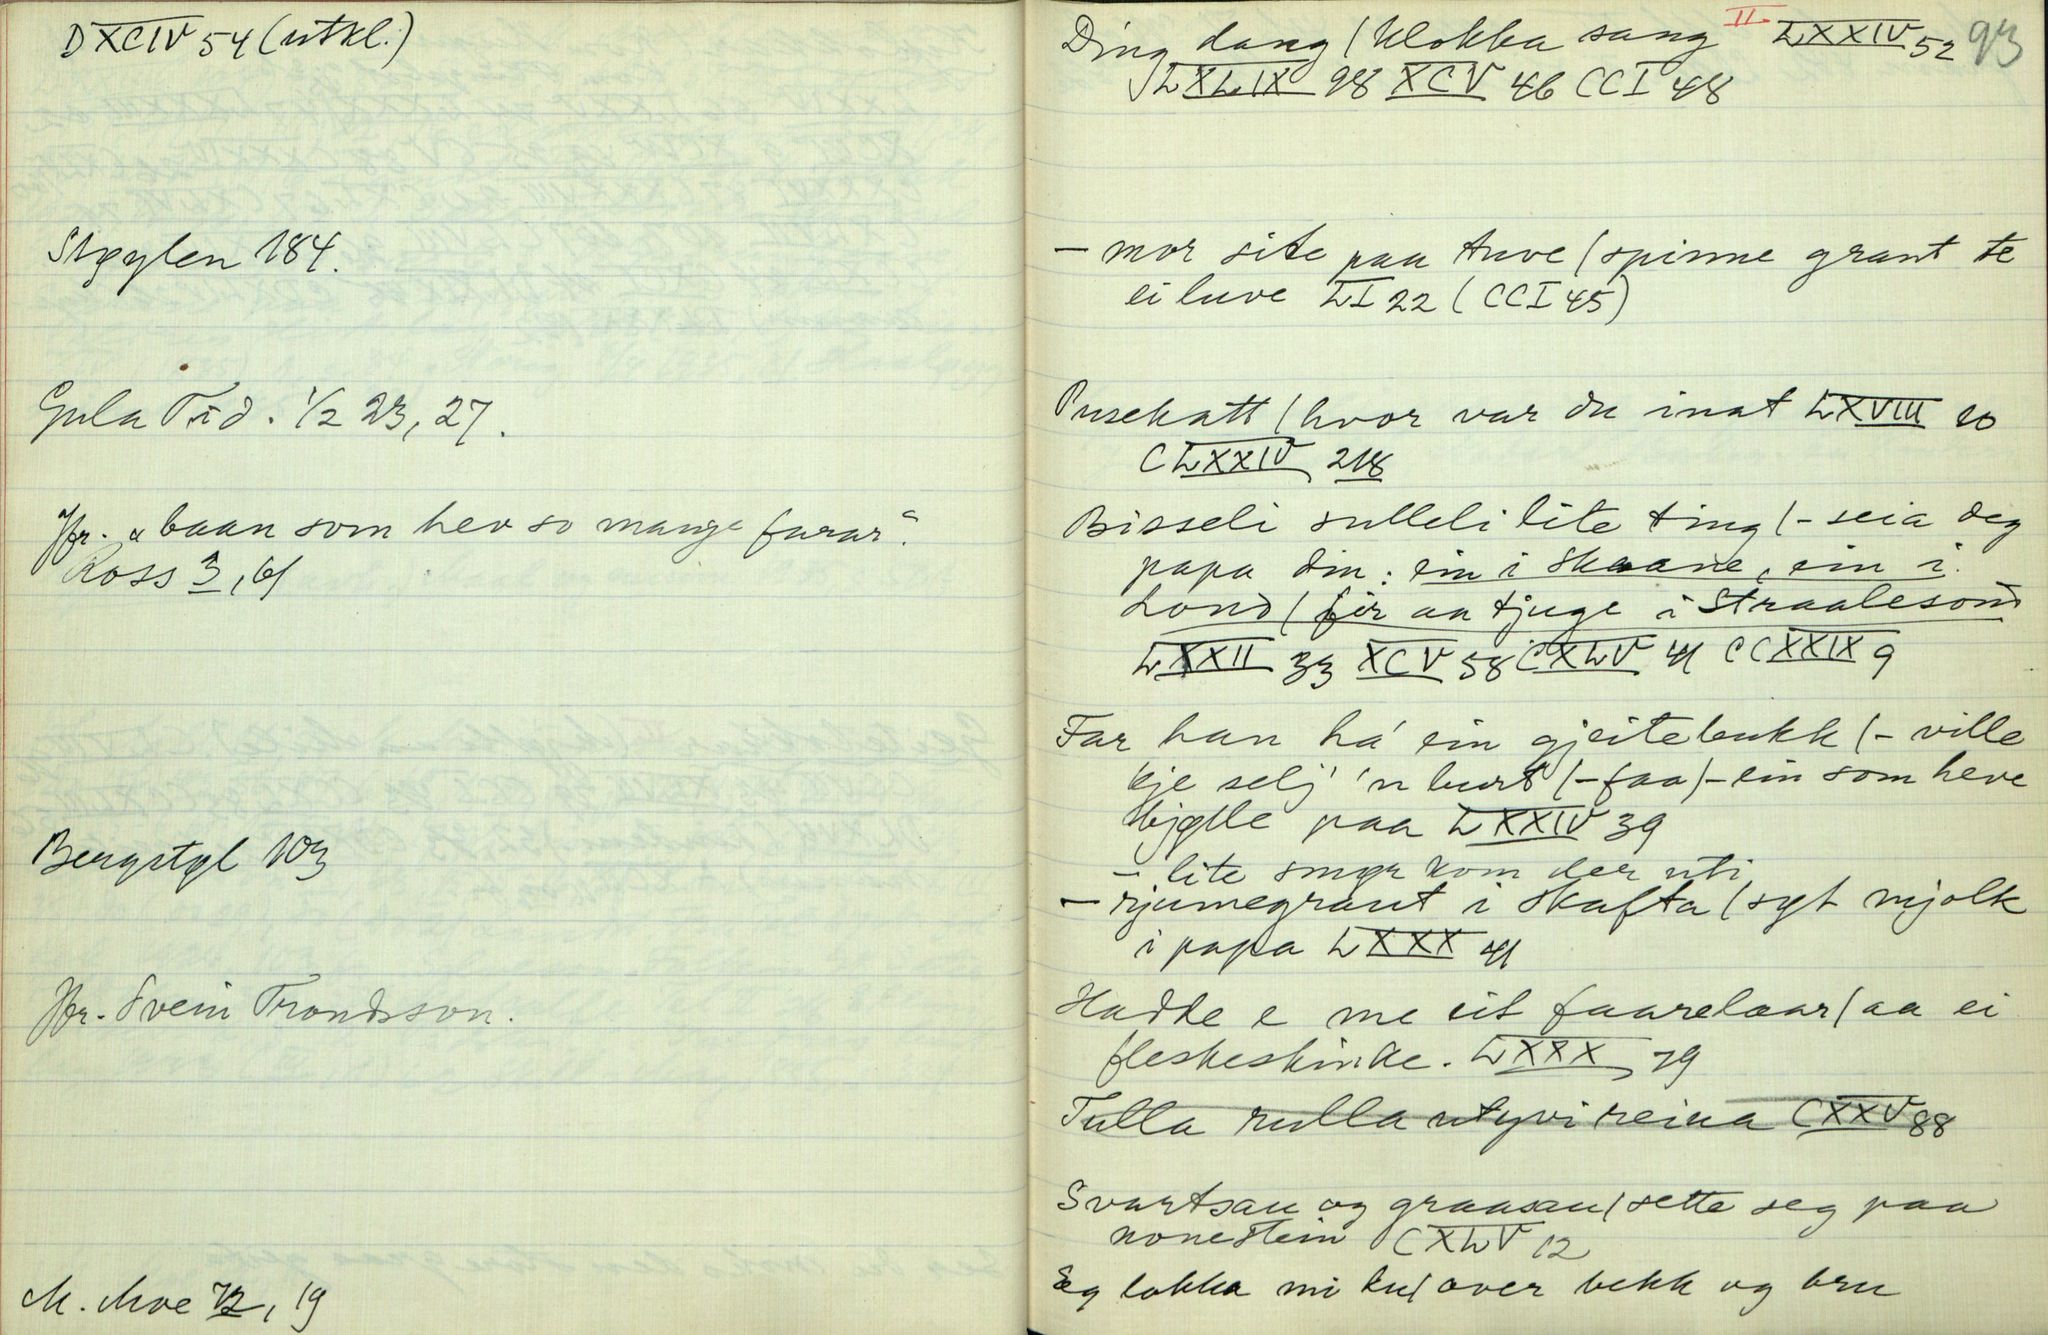 DXCIV 54 (utkl.)
Støylen 184.
Gula Tid. 1/2 23, 27.
Jfr. "baan som hev so mange farar".
Ross 3, 61
Bergstøl 103
Jfr. Svein Trondsson.
M. Moe 72, 19
Ding dang / klokka sang II LXXIV 52 93
LXLIX 98 XCV 46 CCI 48
– mor site paa tuve / spinne grant te
ei luve LI 22 (CCI 45)
Pusekatt / hvor var du inat LXVIII 10
CLXXIV 218
Bisseli sulleli lite ting / – seia deg
papa din: ein i Skaane, ein i
Lond / fir aa tjuge i Straalesond
LXXII 33 XCV 58 CXLV 41 CCXXIX 9
Far han há ein gjeitebukk / – ville
'kje selj' 'n burt / – faa / – ein som heve
bjølle paa LXXIV 39
– lite smør kom der uti
– rjumegraut i skafta / søt mjolk
i papa LXXX 41
Hadde e me eit faarelaar / aa ei
fleskeskinke. LXXX 79
Tulla rulla utyvi reina CXXV 88
Svartsau og graasau / sette seg paa
nonestein CXLV 12
Eg lokka mi ku / over bekk og bru